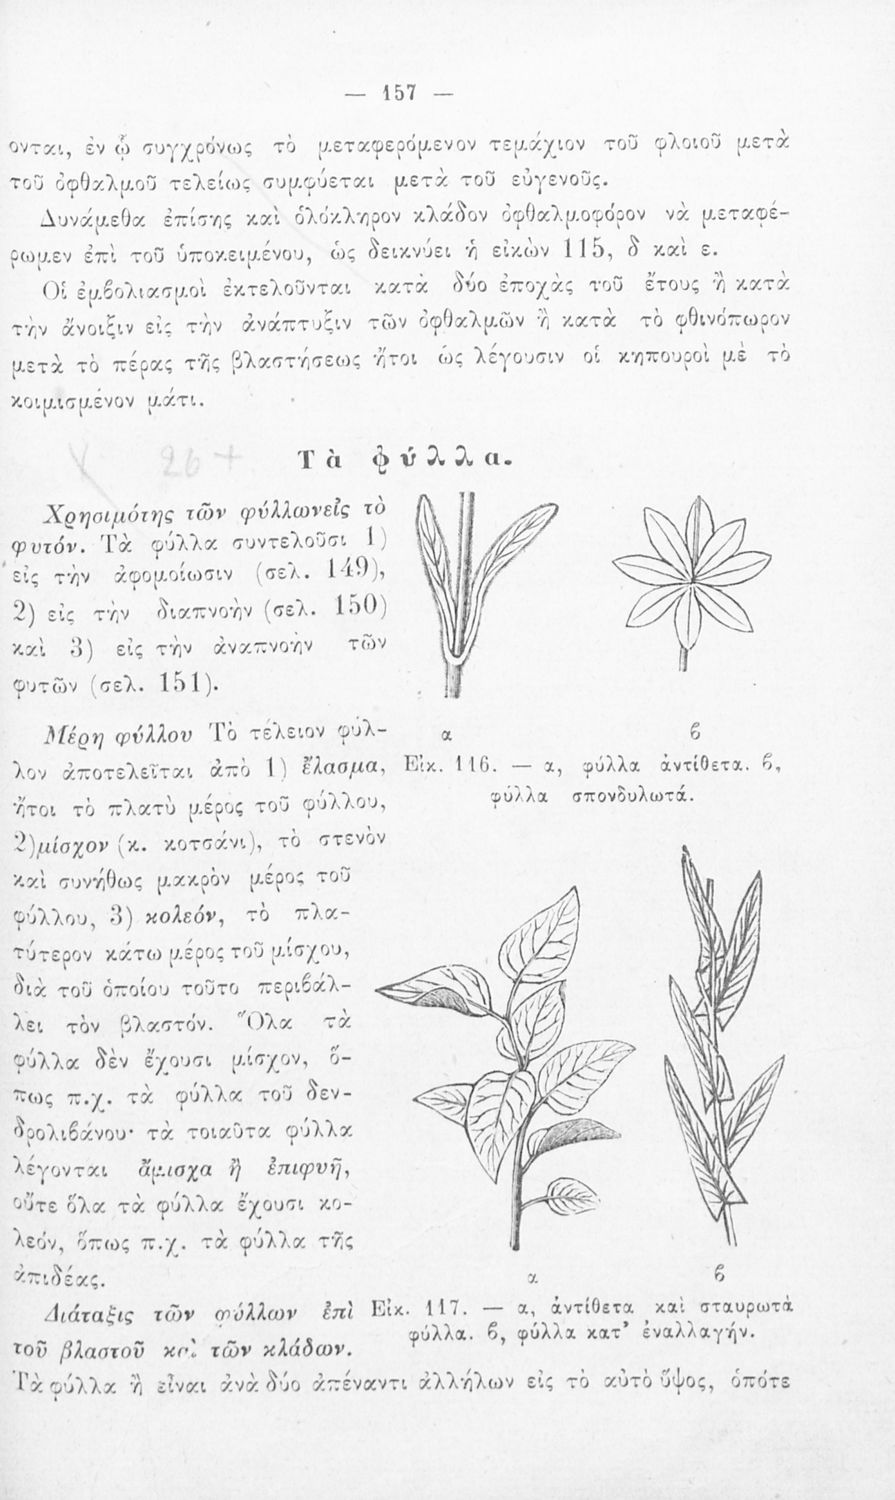 — 157 —
ονται, ἐν ᾧ συγχρόνως τὸ μεταφερόμενον τεμάχιον τοῦ φλοιοῦ μετὰ
τοῦ ὀφθαλμοῦ τελείως συμφύεται μετὰ τοῦ εὐγενοῦς.
Δυνάμεθα ἐπίσης καὶ ὁλόκληρον κλάδον ὀφθαλμοφόρον νὰ μεταφέ-
ρωμεν ἐπὶ τοῦ ὑποκειμένου, ὡς δεικνύει ἡ εἰκὼν 115, δ καὶ ε.
Οἱ ἐμβολιασμοὶ ἐκτελοῦνται κατὰ δύο ἐποχὰς τοῦ ἔτους ἢ κατὰ
τὴν ἄνοιξιν εἰς τὴν ἀνάπτυξιν τῶν ὀφθαλμῶν ἢ κατὰ τὸ φθινόπωρον
μετὰ τὸ πέρας τῆς βλαστήσεως ἤτοι ὡς λέγουσιν οἱ κηπουροὶ μὲ τὸ
κοιμισμένον μάτι.
26 +
Τὰ φύλλα.
Χρησιμότης τῶν φύλλωνεἰς τὸ
φυτόν. Τὰ φύλλα συντελοῦσι 1)
εἰς τὴν ἀφομοίωσιν (σελ. 149),
2) εἰς τὴν διαπνοὴν (σελ. 150)
καὶ 3) εἰς τὴν ἀναπνοὴν τῶν
φυτῶν (σελ. 151).
Μέρη φύλλου Τὸ τέλειον φύλ-
λον ἀποτελεῖται ἀπὸ 1) ἔλασμα,
ἤτοι τὸ πλατὺ μέρος τοῦ φύλλου,
2)μίσχον (κ. κοτσάνι), τὸ στενὸν
καὶ συνήθως μακρὸν μέρος τοῦ
φύλλου, 3) κολεόν, τὸ πλα-
τύτερον κάτω μέρος τοῦ μίσχου,
διὰ τοῦ ὁποίου τοῦτο περιβάλ-
λει τὸν βλαστόν. Ὅλα τὰ
φύλλα δὲν ἔχουσι μίσχον, ὅ-
πως π.χ. τὰ φύλλα τοῦ δεν-
δρολιβάνου· τὰ τοιαῦτα φύλλα
λέγονται ἄμισχα ἢ ἐπιφυῆ,
οὔτε ὅλα τὰ φύλλα ἔχουσι κο-
λεόν, ὅπως π.χ. τὰ φύλλα τῆς
ἀπιδέας.
α ϐ
Εἰκ. 116. — α, φύλλα ἀντίθετα. ϐ,
φύλλα σπονδυλωτά.
α ϐ
Εἰκ. 117. — α, ἀντίθετα καὶ σταυρωτὰ
φύλλα. ϐ, φύλλα κατ' ἐναλλαγήν.
Διάταξις τῶν φύλλων ἐπὶ
τοῦ βλαστοῦ καὶ τῶν κλάδων.
Τὰ φύλλα ἢ εἶναι ἀνὰ δύο ἀπέναντι ἀλλήλων εἰς τὸ αὐτὸ ὕψος, ὁπότε